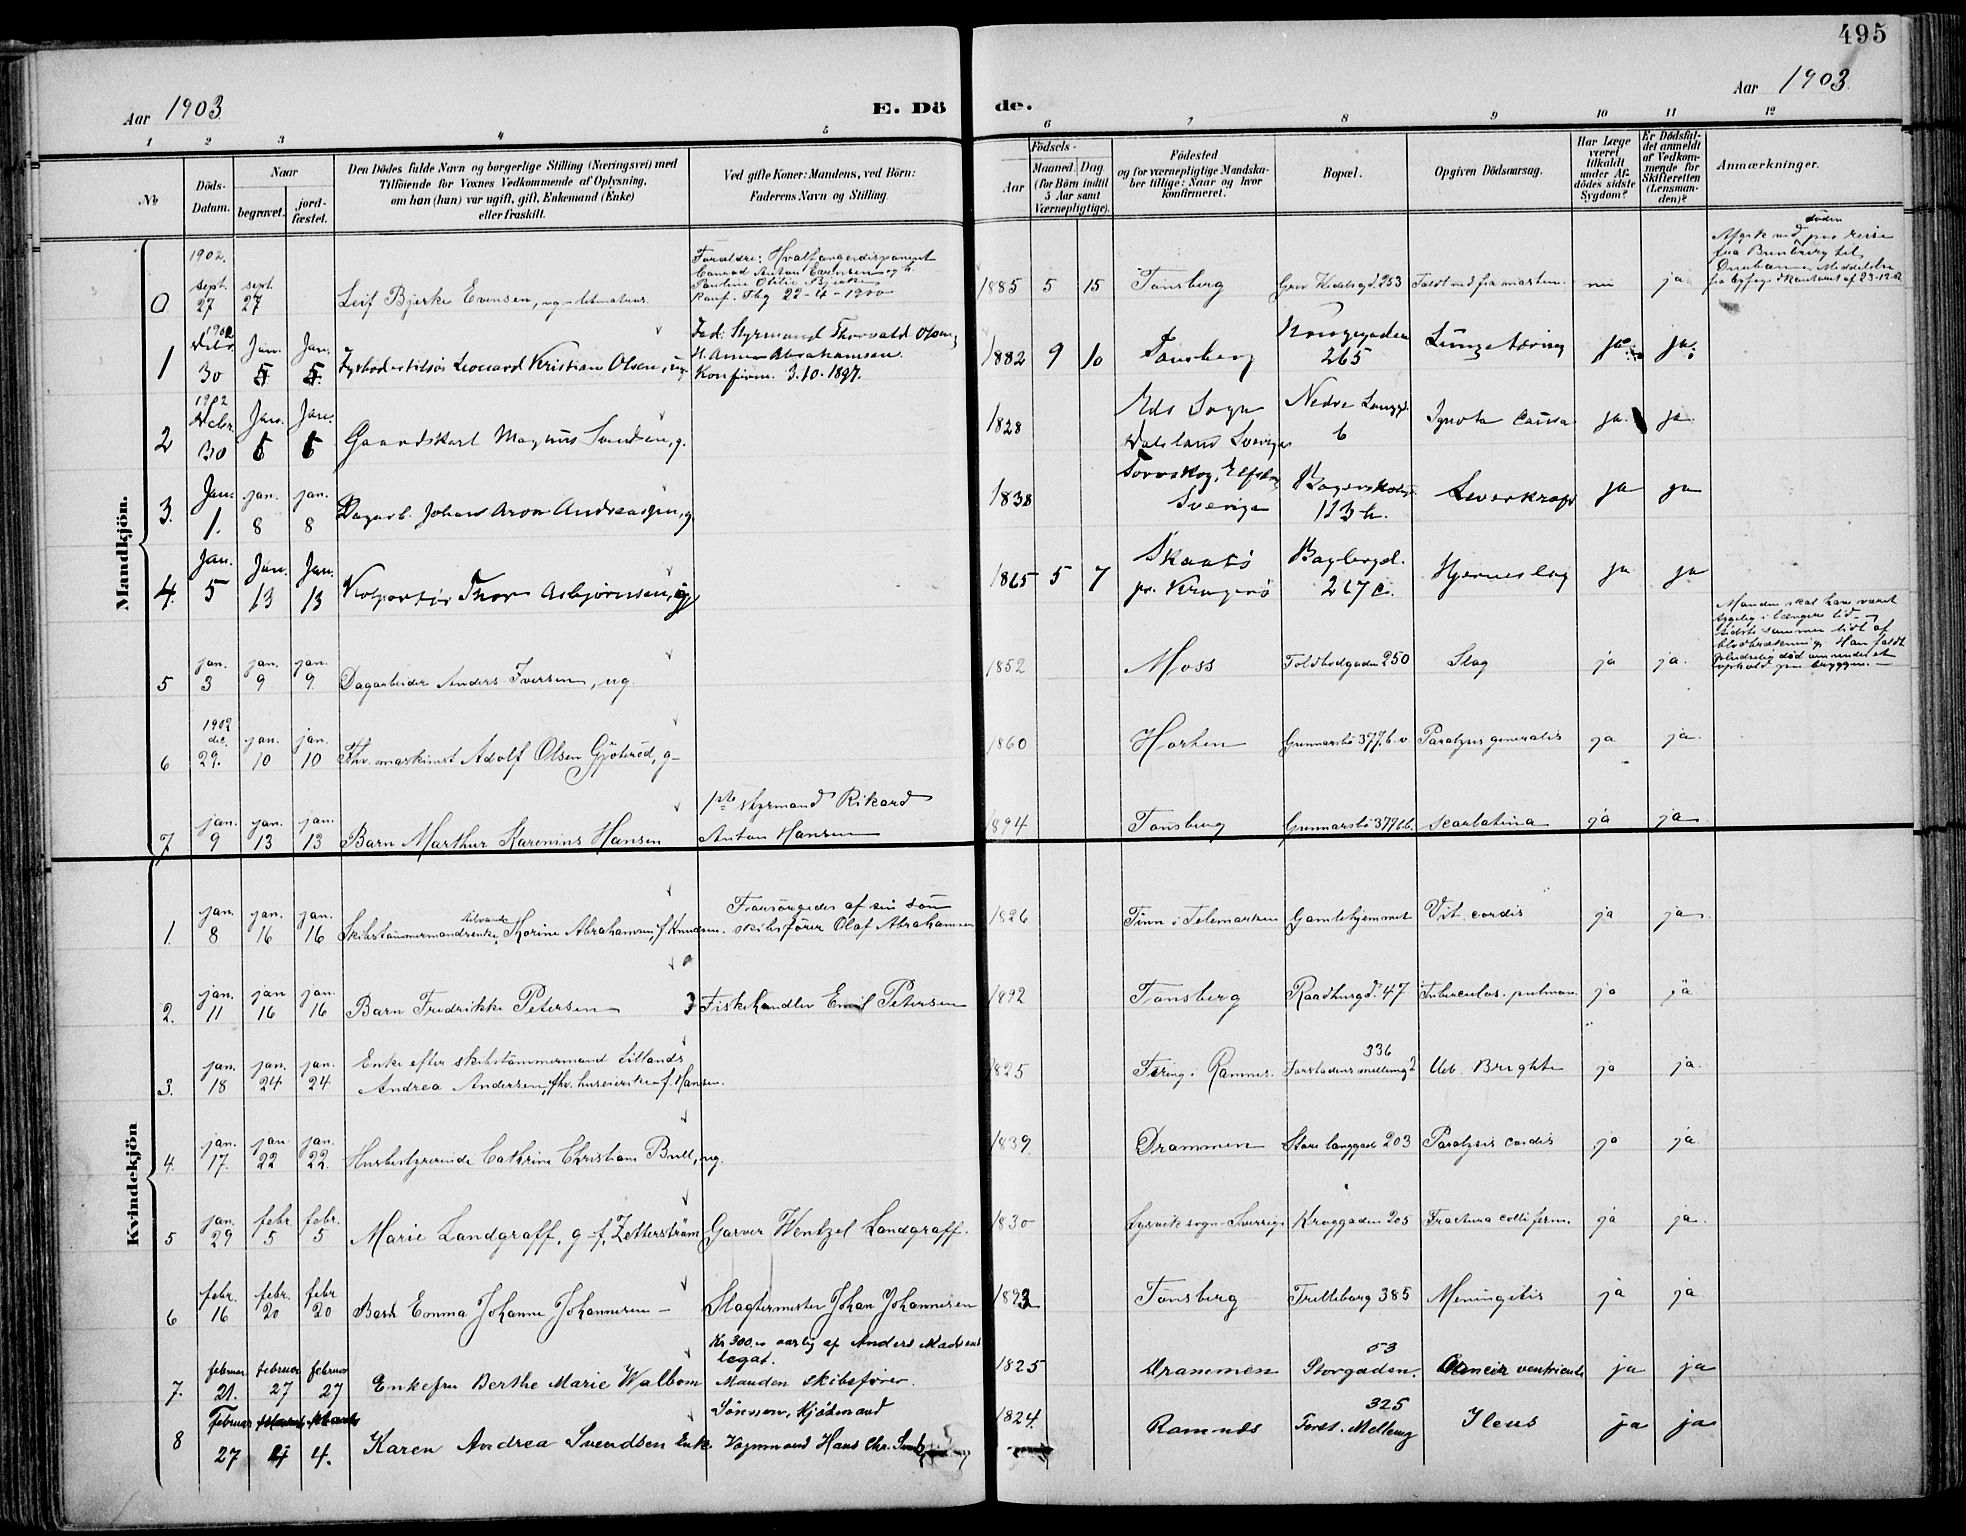 495
Aar 1903
E. Dö
de.
Aar 1903.
1 2 3 4 5 6 7 8 9 10 11 12
№
Döds-
Datum.
Naar
begravet.
jord-
fæstet.
Den Dödes fulde Navn og borgerlige Stilling (Næringsvei) med
Tilföiende for Voxnes Vedkommende af Oplysning,
om han (hun) var ugift, gift, Enkemand (Enke)
eller fraskilt.
Ved gifte Koner: Mandens, ved Börn:
Faderens Navn og Stilling.
Födsels-
Aar
Maaned. Dag.
(for Börn indtil
5 Aar samt
Værnepligtige).
Födested
og for værnepligtige Mandska-
ber tillige: Naar og hvor
konfirmeret.
Bopæl.
Opgiven Dödsaarsag.
Har Læge
været
tilkaldt
under Af-
dödes sidste
Sygdom?
Er Dödsfal-
det anmeldt
af Vedkom-
mende for
Skifteretten
(Lensman-
den)?
Anmærkninger.
Mandkjön.
0 1902. sept. 27 sept. 27 Leif Bjerke Evensen, ug
Forældre: Hvalfangerdisponent
Conrad Anton Evensen og h.
Pauline Otilie Bjerke
Konf. Tbg 22-4-1900
1885 5 15 Tønsberg 253 Faldt ned fra masten nei ja
1 1902 Debr. 30 Jan. 5 Jan. 5. Leonard Kristian Olsen, ug
Fad: Styrmand Thorvald Olsen,
H. Anna Abrahamsen.
Konfirm. 3.10.1897.
1882 9 10 Tønsberg Kongegaden 265 Lungetæring ja ja
2 1902 Debr. 30 Jan. 6 Jan. 6 Gaardskarl Magnus Svendsen, g.
1828 Eds Sogn Dalsland Sverige Nedre Langgd. 6 Ignota causa ja ja
3. Jan. 1. jan. 8 jan. 8 Dagarb. Johans Aron Andreassen, g.
1838 Sverige 113 b. Leverkræft ja ja
4. Jan. 5 Jan. 13 Jan. 13 Kolportør Thor Asbjørnsen, g
1865 5 7 Skaatø pr. Kragerø Baglergd. 267 c. Hjerneslag ja ja
5 jan. 3 jan. 9 jan. 9. Dagarbeider Anders Iversen, ug.
1852 Moss Toldbodgaden 250 Slag ja ja.
6 1902 dec. 29. jan. 10 jan. 10 Fhv. maskinist Adolf Olsen Gjøterød, g-
1860 Horten Gunnarsbø 377, b. v Paralysis generalis ja ja.
7. jan. 9 jan. 13 jan. 13 Barn Marthur Kareninus Hansen
1ste styrmand Rikard
Anton Hansen
1894 Tønsberg Gunnarsbø 377 b. scarlatina ja ja
Kvindekjön
1. jan. 8 jan. 16 jan. 16 Skibstømmermandsenke Thorine Abrahamsen, f. Knudsen.
Forsørgedes af sin søn
skibsfører Olaf Abrahamsen
1826 Tinn i Telemarken Gamlehjemmet Vit. cordis ja ja.
2. jan. 11 jan 16 jan. 16 Barn Fredrikke Petersen Fiskehandler Emil Petersen
1892 Tønsberg Raadhusgd. 47 Tuberculos. pulmon. ja ja
3. jan. 18 jan. 24 jan. 24 Enke efter skibstømmermand
Andrea Andersen, fhv. huseierske f. Hansen.
1825 Ramnes 336 Forstadens mellemg. Brightii ja ja.
4. jan. 17. jan 22 jan. 22. Husbestyrerinde Cathrine Christiane Bull, ug.
1839 Drammen Store langgade 203 Paralysis cordis ja ja
5 jan. 29 febr. 5 febr. 5 Marie Landgraff, g-f. Zetterström Garver Wentzel Landgraff.
1830 Lysvik sogn-Sverige 205 Fractura colli fem. ja ja.
6 febr. 16 febr. 20 febr 20 Barn Emma Johanne Johannesen - Slagtermester Johan Johannesen
1893 Tønsberg Trælleborg 385 Meningitis ja ja
7. februar 21. februar 27 februar 27 Enkefru Berthe Marie Walbom
Kr 300.00 aarlig af Anders Madsens
legat.
Manden skibsfører.
1825 Drammen 53 Storgaden. Cancer ventriculi ja ja
8 Februar 27 Marts 4 Marts 4. Karen Andrea Svendsen Enke
Sönnen, Kjöbmand
Vognmand Hans Chr.
1824. Ramnes 325 Forst. Mellemg Ileus ja ja